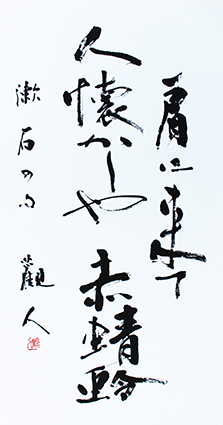 肩に来て
人懐かしや
赤蜻蛉
漱石の句 觀人